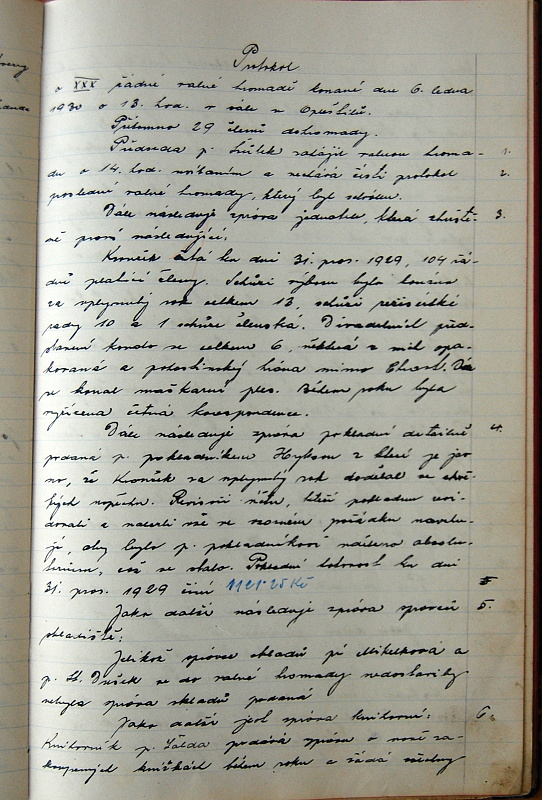 Protokol
o XXX řádné valné hromadě konané dne 6. ledna
1930 o 13. hod. v sále u
Přítomno 29 členů dohromady.
Předseda p. zahájil valnou hroma- 1.
du o 14. hod. uvítáním a nechává čísti protokol 2.
poslední valné hromady, který byl schválen.
Dále následuje zpráva jednatele, která 3.
ně praví následující:
Kroužek čítá ku dni 31. pros. 1929, 104 řá-
dně platící členy. Schůzí výboru bylo konáno
za uplynulý rok celkem 13, schůzí režisérské
rady 10 a 1 schůze členská. Divadelních před-
stavení konalo se celkem 6, některá z nich opa-
kovaná a pohostinsky hrána mimo Dále
se konal maškarní ples. Během roku byla
vyřízena četná korespondence.
Dále následuje zpráva pokladní detailně 4.
podaná p. pokladníkem z které je jas
no, že Kroužek za uplynulý rok dodělal se
úspěchu. Revisoři účtů, kteří pokladnu revi-
dovali a nalezli vše ve vzorném pořádku navrhu-
jí, aby bylo p. pokladníkovi uděleno absolu-
torium, což se stalo. Pokladní hotovost ku dni
31. pros. 1929 činí 1121.25 Kč
Jako další následuje zpráva správců 5.
skladiště:
Jelikož správce skladů pí Mikelková a
p. St. Dušek se do valné hromady nedostavili,
nebyla zpráva skladů podaná
Jako další jest zpráva knihovní: 6.
Knihovník p. podává zprávu o nově za-
koupených knížkách během roku a žádá všechny